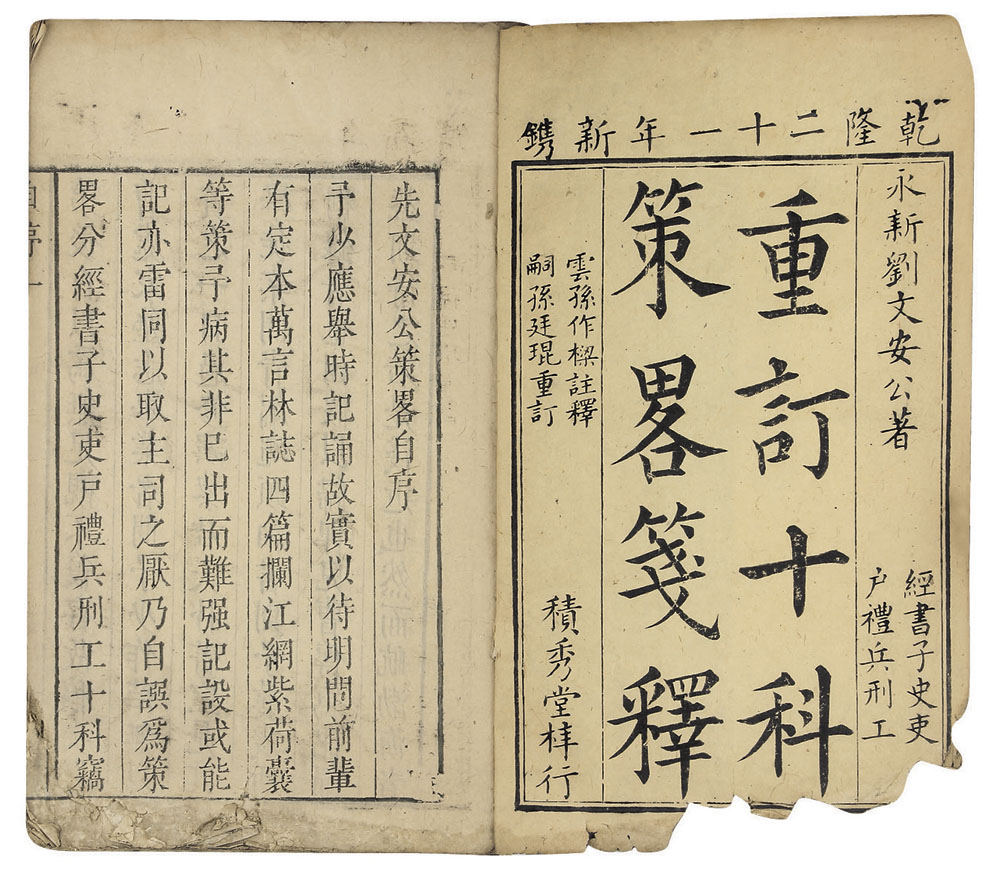 乾隆二十一年新鐫
永新劉文安公著
經書子史吏
戶禮兵刑工
重訂十科
策畧箋釋
雲孫作樑註釋
嗣孫廷琨重訂
積秀堂梓行
先文安公策畧自序
予少應舉時記誦故實以待明問前輩
有定本萬言林誌四篇攔江網紫荷囊
等策予病其非已出而難强記設或能
記亦雷同以取主司之厭乃自誤爲策
畧分經書子史吏戶禮兵刑工十科竊
自序一